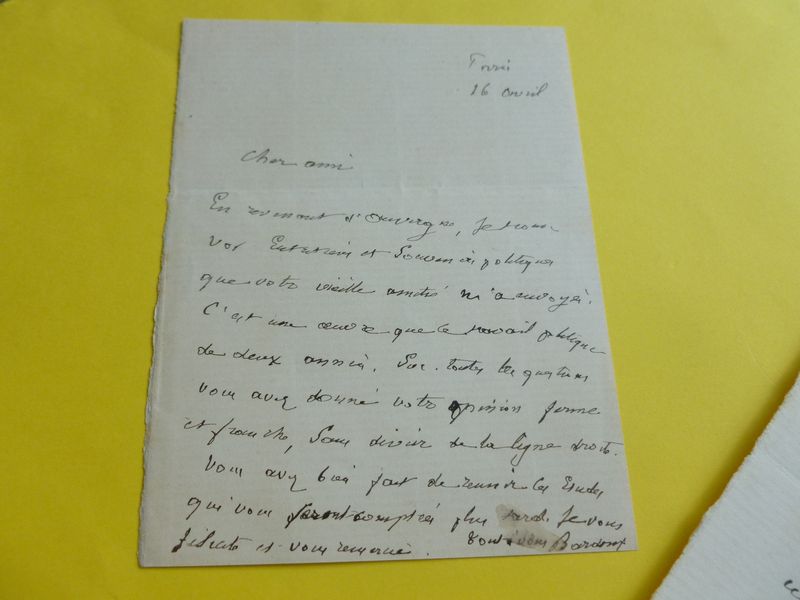 Paris
16 avril
Cher ami
En revenant d'Auvergne, je trouve
vos Entretiens et Souvenirs politiques
que votre vieille amitié m'a envoyés.
C'est une œuvre que le travail politique
de deux années. Sur toutes les questions
vous avez donné votre opinion ferme
et franche, sans dévier de la ligne droite.
Vous avez bien fait de réunir les Etudes
qui vous seront comptées plus tard. Je vous
félicite et vous remercie. Tout à vous Bardoux